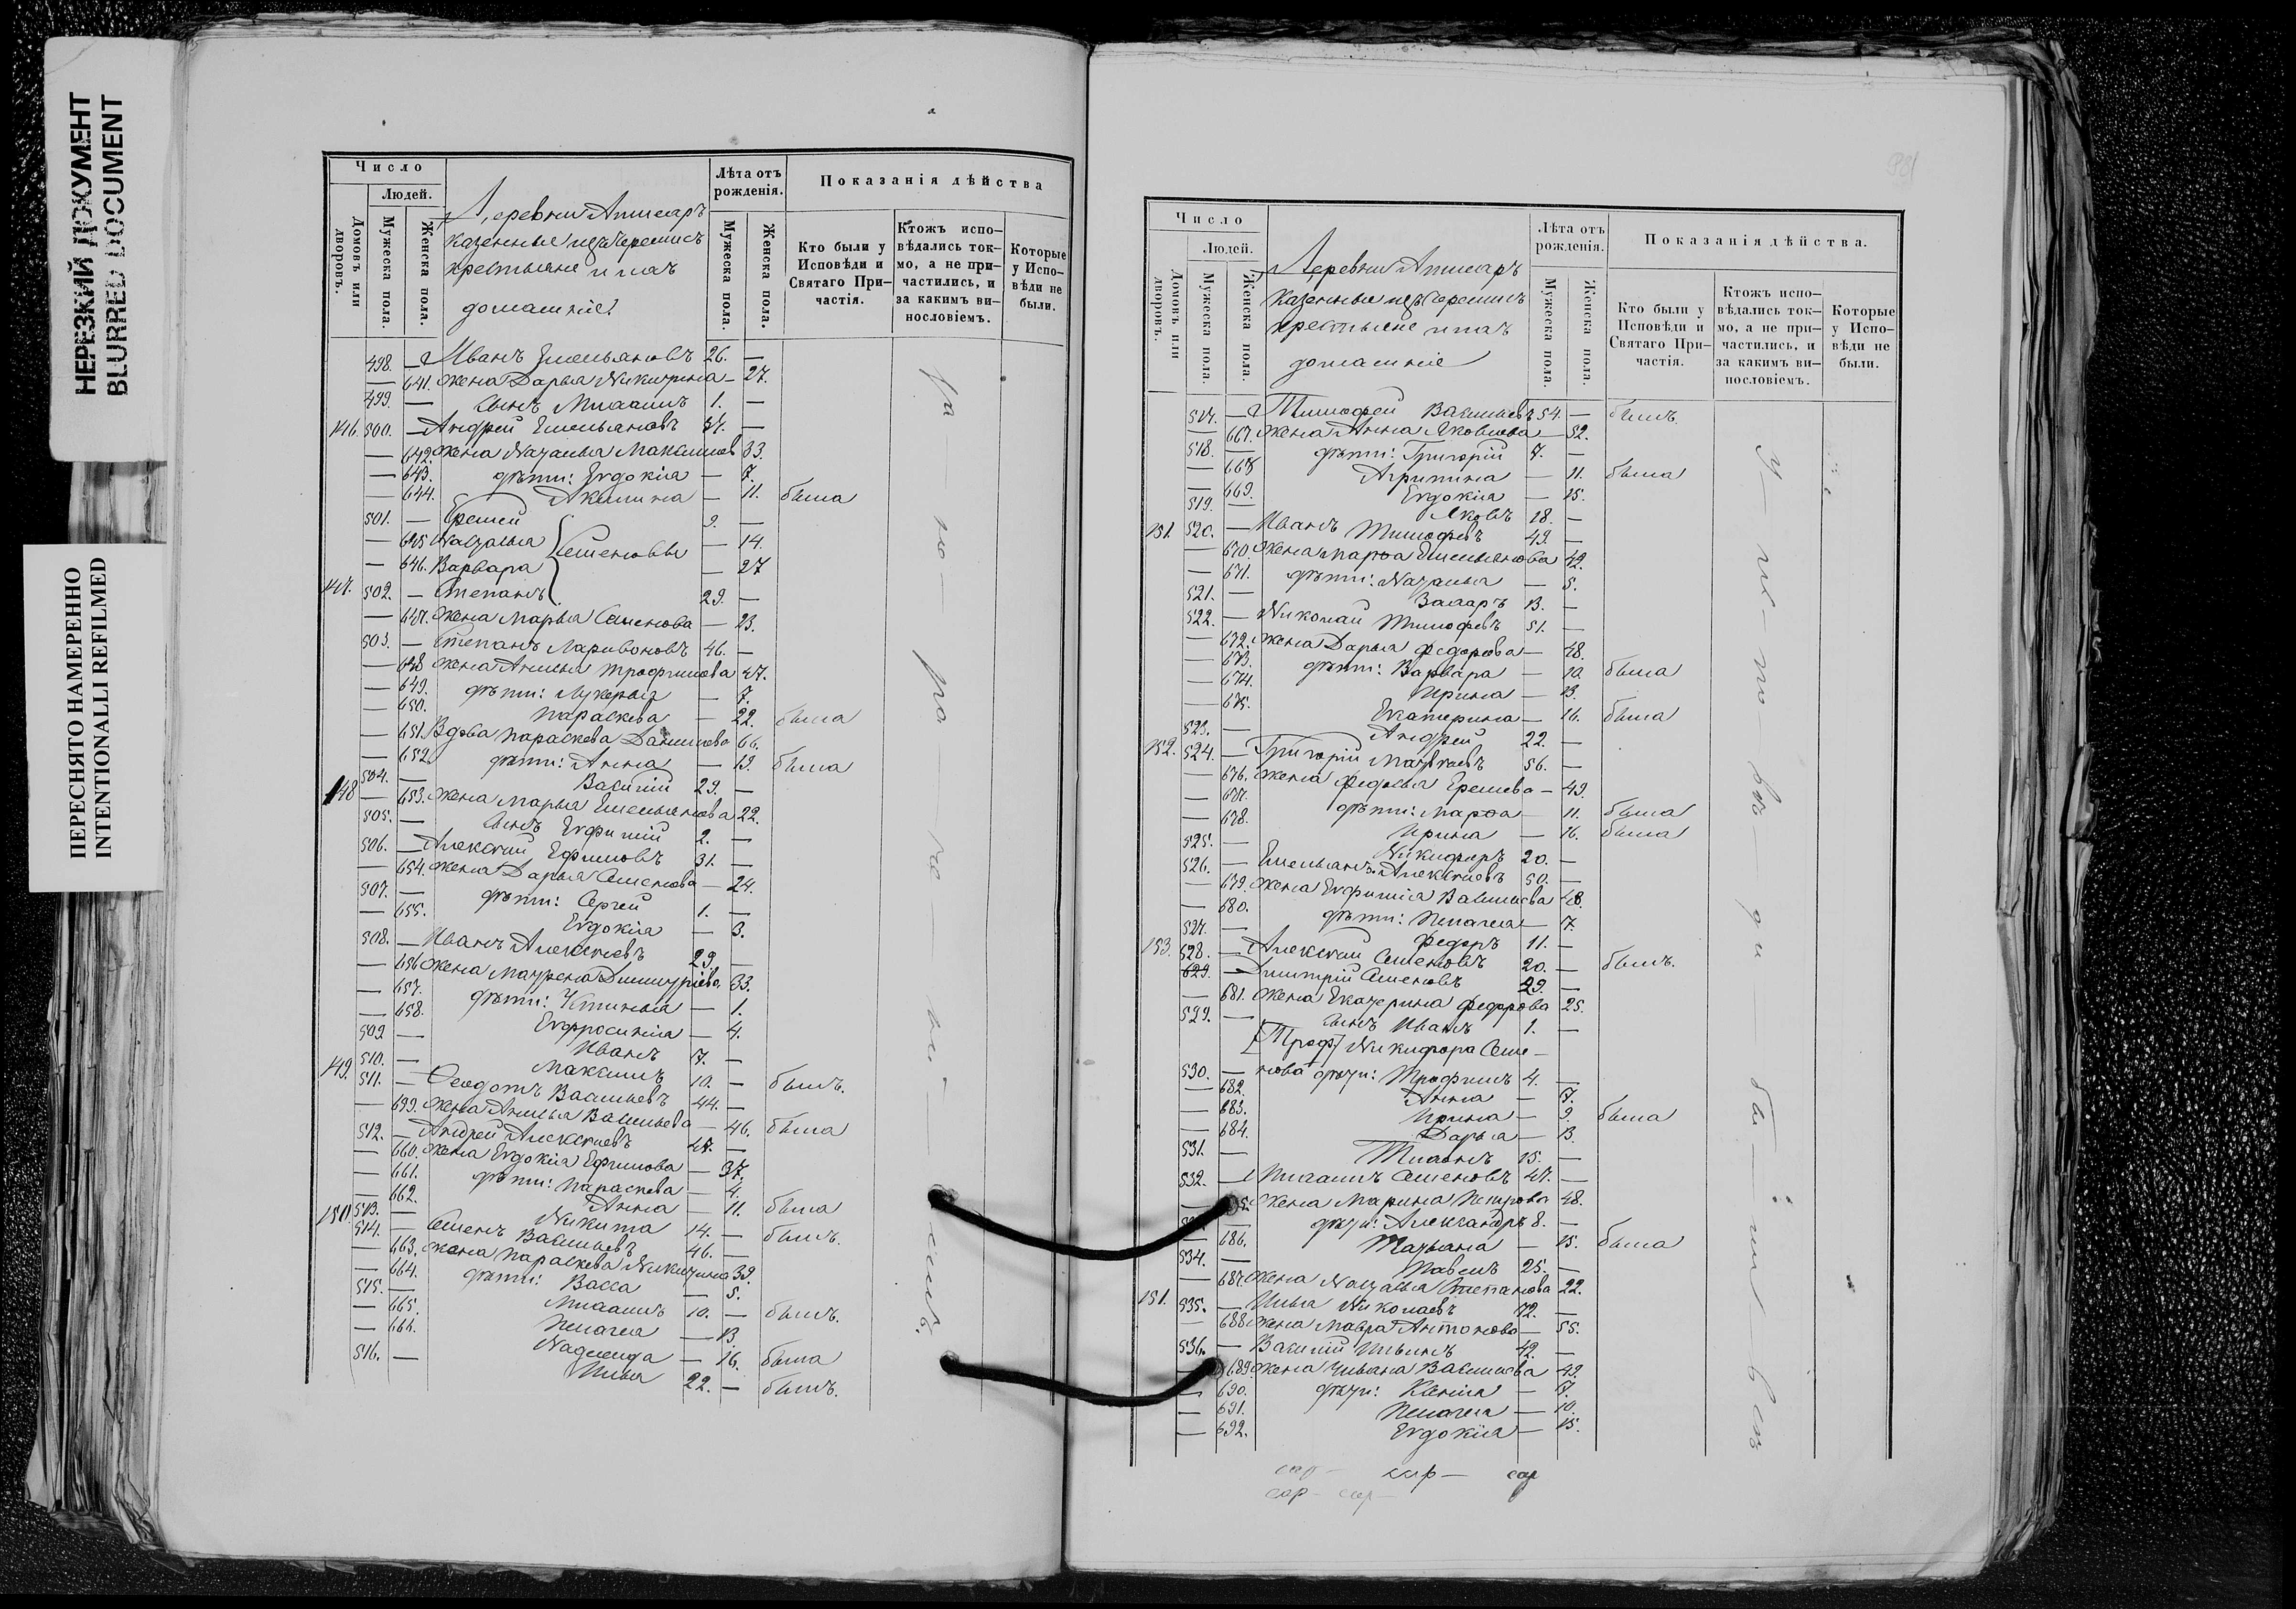 НЕРЕЗКИЙ ДОКУМЕНТ
BLURRED DOCUMENT
ПЕРЕСНЯТО НАМЕРЕННО
INTENTIONALLI REFILMED
Число
Людей.
Домовъ или дворовъ.
Мужеска пола.
Женска пола.
Деревни Апшеаръ
казенные изъ черемисъ
крестьяне и ихъ
домашніе
Лѣта отъ рожденія.
Мужеска пола.
Женска пола.
Показанія дѣйства
Кто были у Исповѣди и Святаго Причастія.
Ктожъ исповѣдались токмо, а не причастились, и за какимъ винословіемъ.
Которые у Исповѣди не были.
498. — Иванъ Емельяновъ 26. —
— 641. Жена Дарья Никитина — 27.
499. — сынъ Михаилъ 1. —
146. 500. — Андрей Емельяновъ 34. —
— 642. Жена Наталья Максимов 33.
— 643. дѣти: Евдокія — 7.
— 644. Акилина — 11. была
501. — Еремей 9. —
— 645 Наталья } Семеновы — 14.
— 646. Варвара — 27
147. 502. — Степанъ 29. —
— 647. Жена Марья Семенова — 23.
503. — Степанъ Ларивоновъ 46. —
— 648 Жена Анисья Трофимова 47.
— 649. дѣти: Лукерья — 7.
— 650. Параскева — 22. была
— 651. Вдова Параскева Данилова 66.
— 652 дѣти: Анна — 19. была
148 504. — Василій 29. —
— 653. Жена Марья Емельянова 22.
505. — сынъ Евфимій 2. —
506. — Алексѣй Ефимовъ 31. —
— 654. Жена Дарья Семенова — 24.
507. — дѣти: Сергей 1. —
— 655. Евдокія — 3.
508. — Иванъ Алексѣевъ 29. —
— 656 Жена Матрена Димитріева 33.
— 657. дѣти: Устинья — 1.
— 658. Евфросинія — 4.
509 — Иванъ 7. —
149. 510. — Максимъ 10. — былъ.
511. — Феодотъ Васильевъ 44. —
— 699. Жена Анисья Васильева — 46. была
512. — Андрей Алексѣевъ 47. —
— 660. Жена Евдокія Ефимова — 37.
— 661. дѣти: Параскева — 4.
— 662. Анна — 11. была
150 513. — Никита 14. — былъ.
514. — Семенъ Васильевъ 46. —
— 663. Жена Параскева Никитина 39.
— 664. дѣти: Васса — 5.
515. — Михаилъ 10. — былъ.
— 665. Пелагея — 13.
— 666. Надежда — 16. была
516. — Илья 22. — былъ.
Число
Людей.
Домовъ или дворовъ.
Мужеска пола.
Женска пола.
Деревни Апшеаръ
казенные изъ Черемисъ
крестьяне и ихъ
домашніе
Лѣта отъ рожденія.
Мужеска пола.
Женска пола.
Показанія дѣйства.
Кто были у Исповѣди и Святаго Причастія.
Ктожъ исповѣдались токмо, а не причастились, и за какимъ винословіемъ.
Которые у Исповѣди не были.
517. — Тимофей Васильевъ 54 — былъ.
— 667. Жена Анна Яковлева — 52.
518. — дѣти: Григорій 7. —
— 668 Агрипина — 11. была
— 669. Евдокія — 15.
519. — Яковъ 18. —
151. 520. — Иванъ Тимофѣевъ 49. —
— 670. Жена Марѳа Емельянова 42.
— 671. дѣти: Наталья — 5.
521. — Захаръ 13. —
522. — Николай Тимофѣевъ 51. —
— 672. Жена Дарья Федорова — 48.
— 673. дѣти: Варвара — 10. была
— 674. Ирина — 13.
— 675. Екатерина — 16. была
523. — Андрей 22. —
152. 524. — Григорій Матвѣевъ 56. —
— 676. Жена Федосья Еремѣева — 49.
— 677. дѣти: Марѳа — 11. была
— 678. Ирина — 16. была
525. — Никифоръ 20. —
526. — Емельянъ Алексѣевъ 50. —
— 679. Жена Евфимія Васильева 48.
— 680. дѣти: Пелагея — 7.
527. — Федоръ 11. —
153. 528. — Алексѣй Семеновъ 20. — былъ.
629. — Дмитрій Семеновъ 29. —
— 681. Жена Екатерина Федорова 25.
529. — сынъ Иванъ 1. —
[Троф] Никифора Семе-
530. — нова дѣти: Трофимъ 4. —
— 682. Анна — 7.
— 683. Ирина — 9. была
— 684. Дарья — 13.
531. — Тихонъ 15. —
532. — Михаилъ Семеновъ 47. —
Жена Марина Петрова 48.
— дѣти: Александръ 8. —
— 686. Татьяна — 15. была
534. — Павелъ 25. —
— 687. Жена Наталья Степанова 22.
151. 535. — Илья Николаевъ 72. —
— 688 Жена Мавра Антонова — 55.
536. — Василій Ильинъ 42. —
— 689 Жена Ульяна Васильева 49.
— 690. дѣти: Ксенія — 7.
— 691. Пелагея — 10.
— 692. Евдокія — 15.